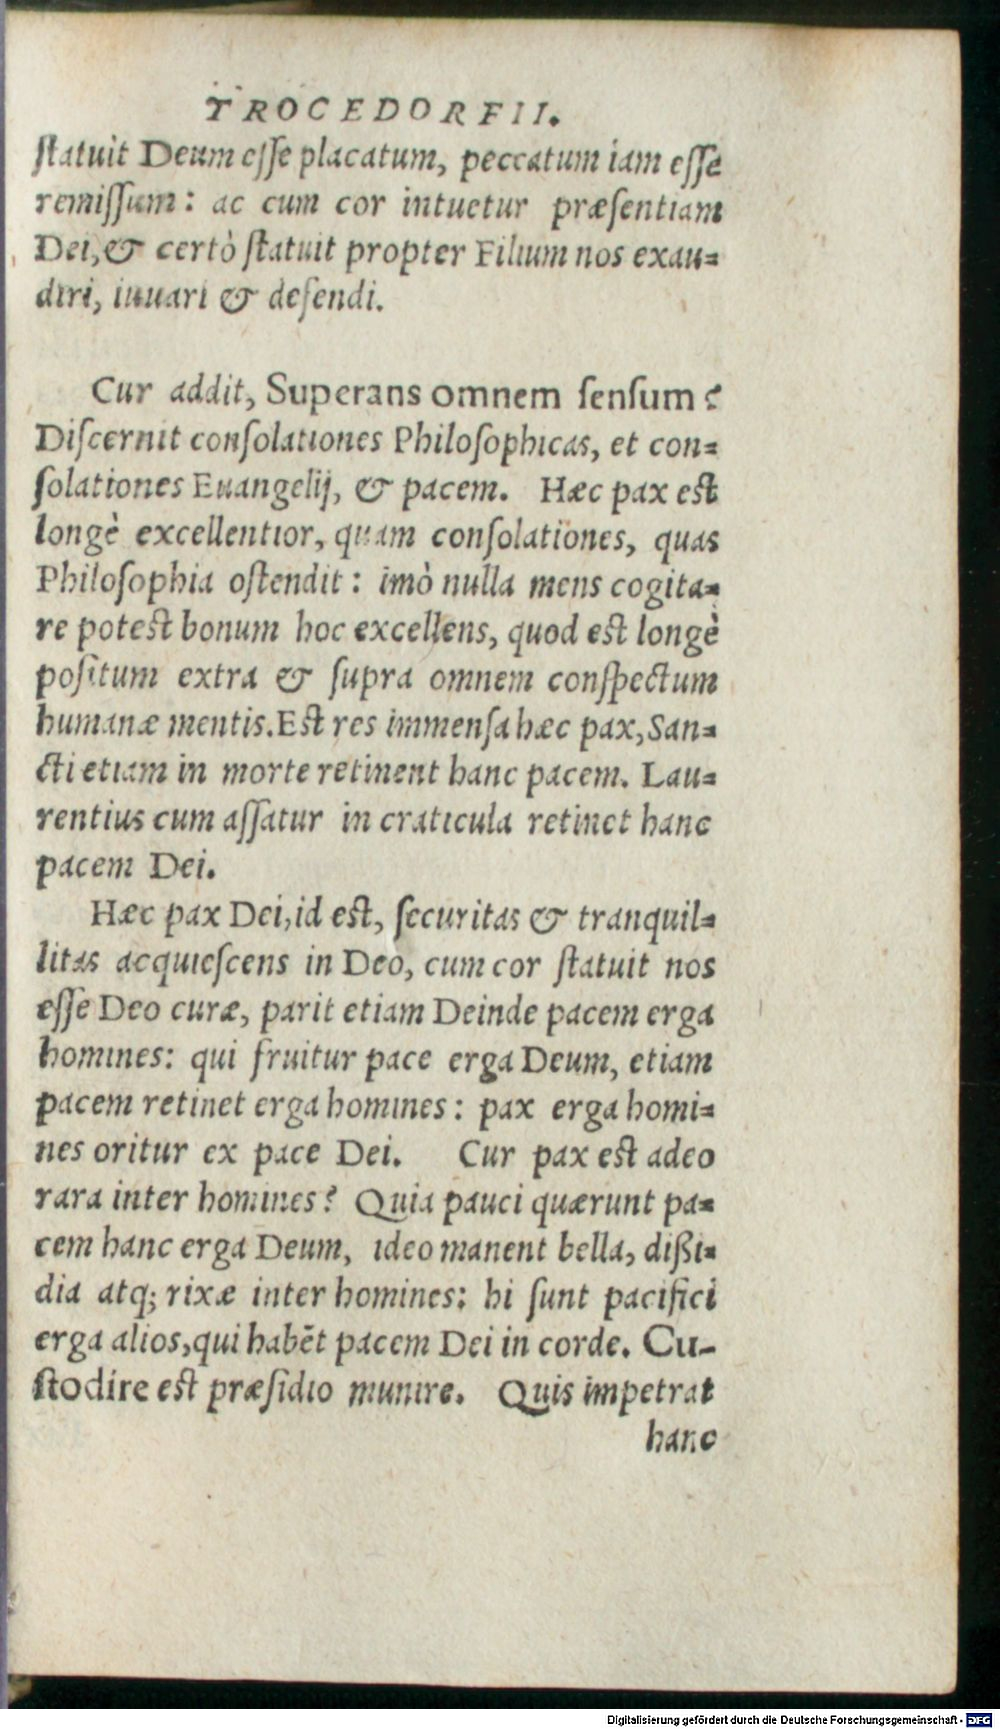 TROCEDORFII.
ſtatuit Deum eſſe placatum, peccatum iam eſſe
remiſſum: ac cum cor intuetur præſentiam
Dei, & certò ſtatuit propter Filium nos exau=
diri, iuuari & defendi.
Cur addit, Superans omnem ſenſum?
Diſcernit conſolationes Philoſophicas, et con=
ſolationes Euangelij, & pacem. Hæc pax eſt
longè excellentior, quam conſolationes, quas
Philoſophia oſtendit: imò nulla mens cogita=
re poteſt bonum hoc excellens, quod eſt longè
poſitum extra & ſupra omnem conſpectum
humanæ mentis. Eſt res immenſa hæc pax, San=
cti etiam in morte retinent hanc pacem. Lau=
rentius cum aſſatur in craticula retinet hanc
pacem Dei.
Hæc pax Dei, id eſt, ſecuritas & tranquil=
litas acquieſcens in Deo, cum cor ſtatuit nos
eſſe Deo curæ, parit etiam Deinde pacem erga
homines: qui fruitur pace erga Deum, etiam
pacem retinet erga homines: pax erga homi=
nes oritur ex pace Dei. Cur pax eſt adeo
rara inter homines? Quia pauci quærunt pa=
cem hanc erga Deum, ideo manent bella, dißi=
dia atq; rixæ inter homines: hi ſunt pacifici
erga alios, qui habēt pacem Dei in corde. Cu-
ſtodire eſt præſidio munire. Quis impetrat
hanc
Digitalisierung gefördert durch die Deutsche Forschungsgemeinschaft - DFG